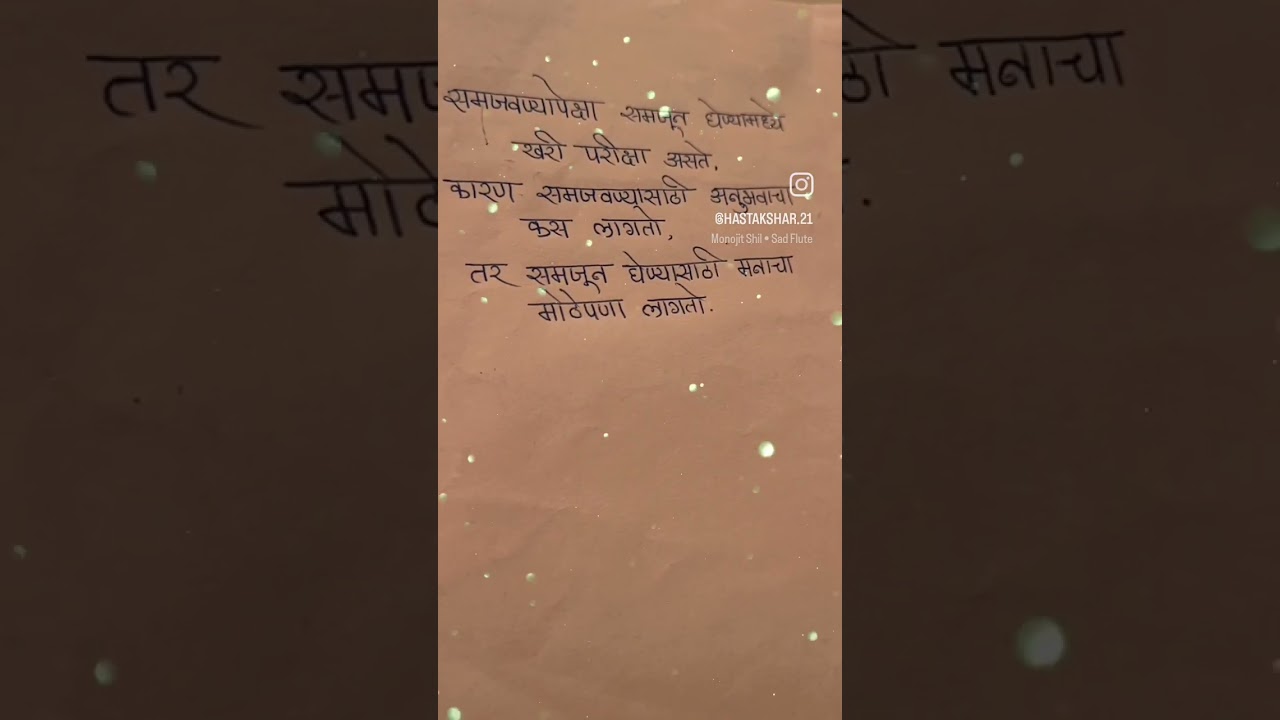 समजवण्यापेक्षा समजून घेण्यामध्ये
खरी परीक्षा असते.
कारण समजवण्यासाठी अनुभवाचा
कस लागतो,
तर समजून घेण्यासाठी मनाचा
मोठेपणा लागतो.
@HASTAKSHAR.21
Monojit Shil • Sad Flute